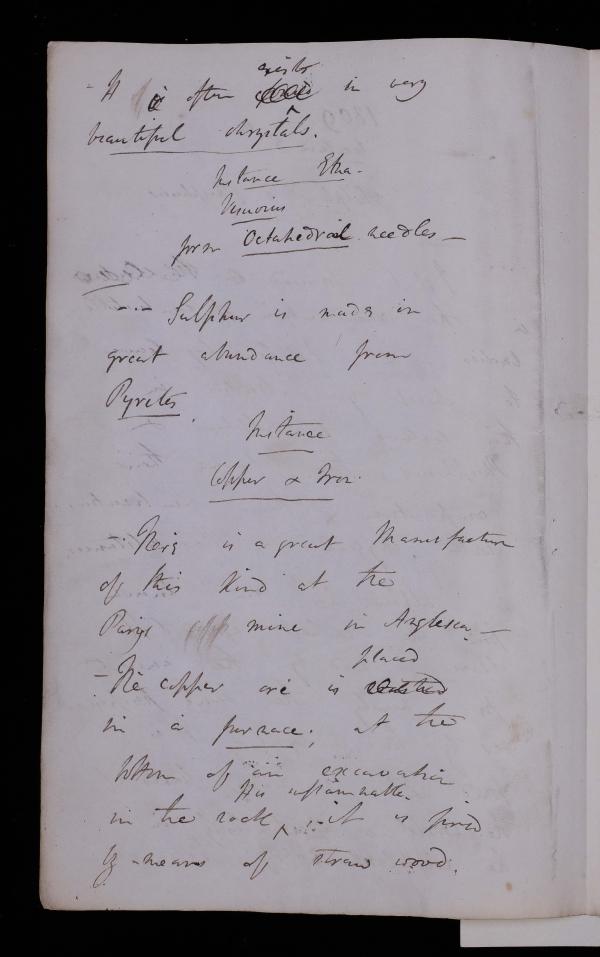 - It is often exists in very
beautiful chrystals.
Instance Etna.
Vesuvius
form Octahedral needles —
-.- Sulphur is made in
great abundance from
Pyrites.
Instance
Copper & Iron.
There is a great Manufacture
of this kind at the
Parys mine in Anglesea —
placed
- The copper ore is
in a furnace; at the
bottom of an excavation
His inflammable.
in the rock, it is fired
by means of straw wood.